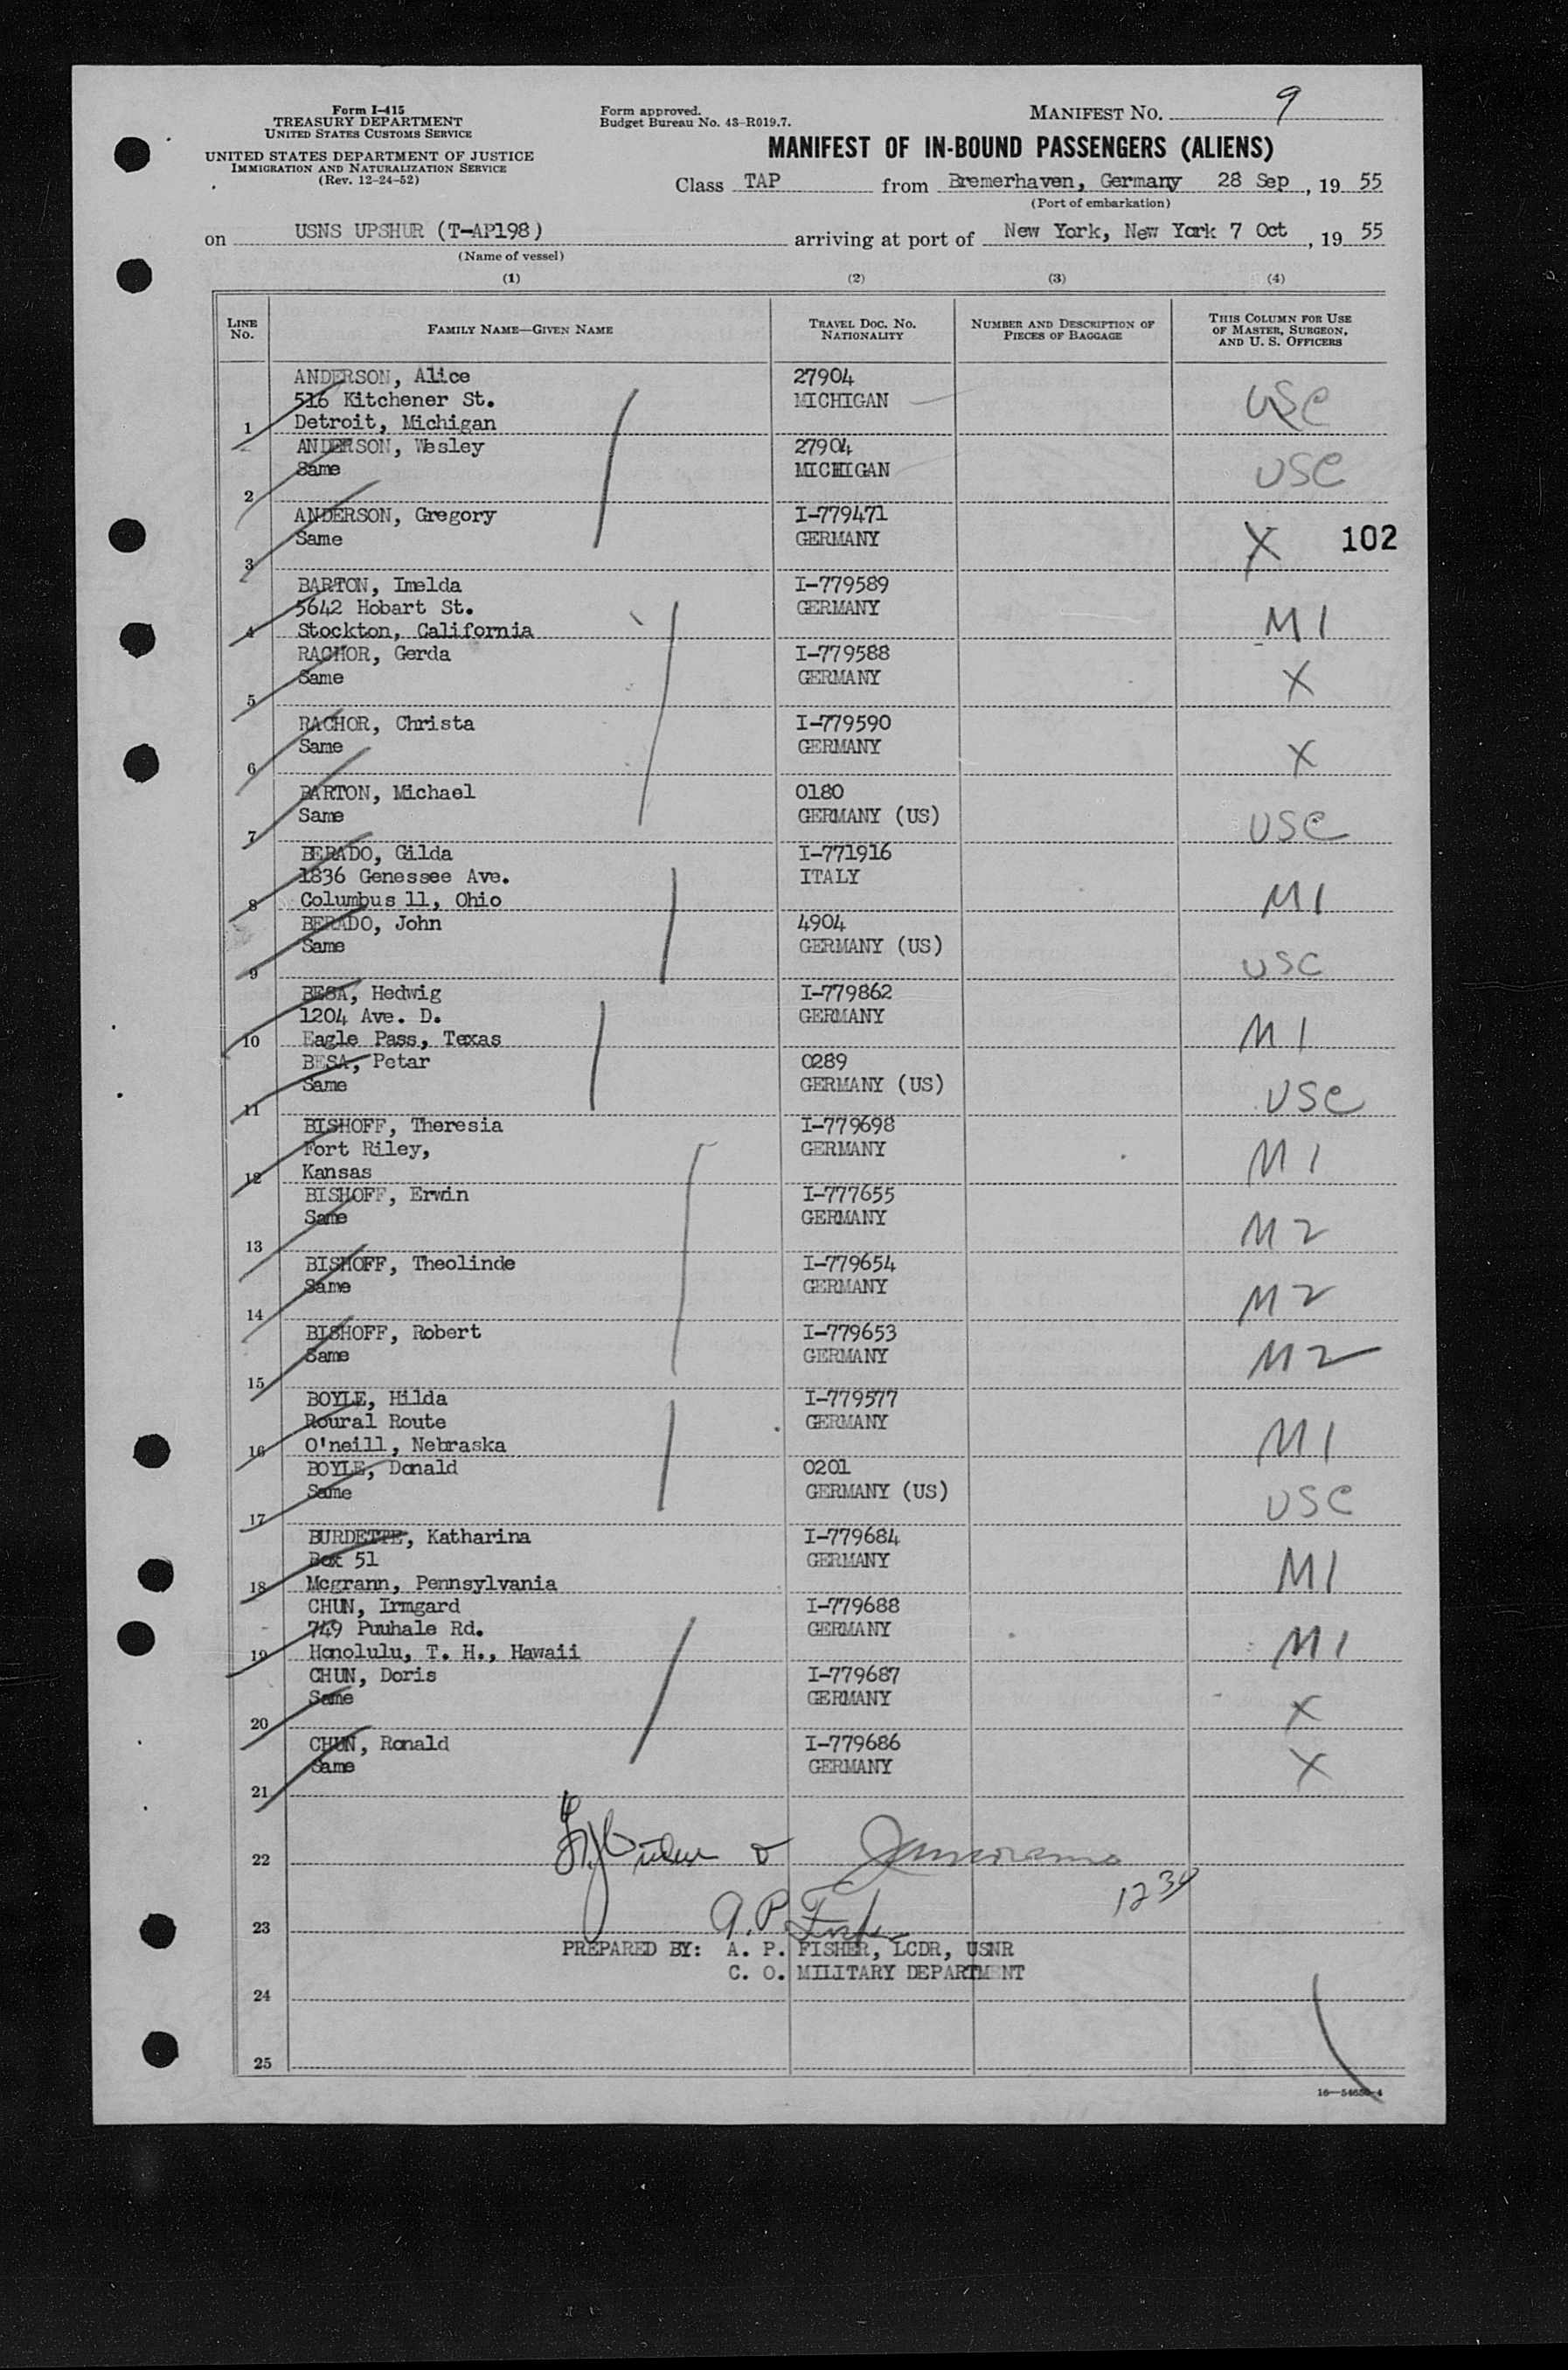 Form I-415
TREASURY DEPARTMENT
UNITED STATES CUSTOMS SERVICE
UNITED STATES DEPARTMENT OF JUSTICE
IMMIGRATION AND NATURALIZATION SERVICE
(Rev. 12-24-52)
Form approved.
Budget Bureau No. 43-R019.7.
MANIFEST NO. 9
MANIFEST OF IN-BOUND PASSENGERS (ALIENS)
Class TAP from Bremerhaven, Germany 28 Sep, 19 55
(Port of embarkation)
on USNS UPSHUR (T-AP198) arriving at port of New York, New York 7 Oct, 19 55
(Name of vessel)
(1) (2) (3) (4)
LINE No. FAMILY NAME—GIVEN NAME TRAVEL DOC. NO. NATIONALITY NUMBER AND DESCRIPTION OF PIECES OF BAGGAGE THIS COLUMN FOR USE OF MASTER, SURGEON, AND U. S. OFFICERS
ANDERSON, Alice 27904
516 Kitchener St. MICHIGAN USC
1 Detroit, Michigan
ANDERSON, Wesley 27904
Same MICHIGAN USC
2
ANDERSON, Gregory I-779471
Same GERMANY X 102
3
BARTON, Imelda I-779589
5642 Hobart St. GERMANY
4 Stockton, California M 1
RACHOR, Gerda I-779588
Same GERMANY X
5
RACHOR, Christa I-779590
Same GERMANY X
6
BARTON, Michael 0180
Same GERMANY (US) USC
7
BERADO, Gilda I-771916
1836 Genessee Ave. ITALY
8 Columbus 11, Ohio M 1
BERADO, John 4904
Same GERMANY (US)
9 USC
BESA, Hedwig I-779862
1204 Ave. D. GERMANY
10 Eagle Pass, Texas M 1
BESA, Petar 0289
Same GERMANY (US) USC
11
BISHOFF, Theresia I-779698
Fort Riley, GERMANY M 1
12 Kansas
BISHOFF, Erwin I-777655
Same GERMANY M 2
13
BISHOFF, Theolinde I-779654
Same GERMANY M 2
14
BISHOFF, Robert I-779653
Same GERMANY M 2
15
BOYLE, Hilda I-779577
Roural Route GERMANY
16 O'neill, Nebraska M 1
BOYLE, Donald 0201
Same GERMANY (US) USC
17
BURDETTE, Katharina I-779684
Box 51 GERMANY M 1
18 Mcgrann, Pennsylvania
CHUN, Irmgard I-779688
749 Puuhale Rd. GERMANY M 1
19 Honolulu, T. H., Hawaii
CHUN, Doris I-779687
Same GERMANY X
20
CHUN, Ronald I-779686
Same GERMANY X
21
22
1234
23
PREPARED BY: A. P. FISHER, LCDR, USNR
C. O. MILITARY DEPARTMENT
24
25